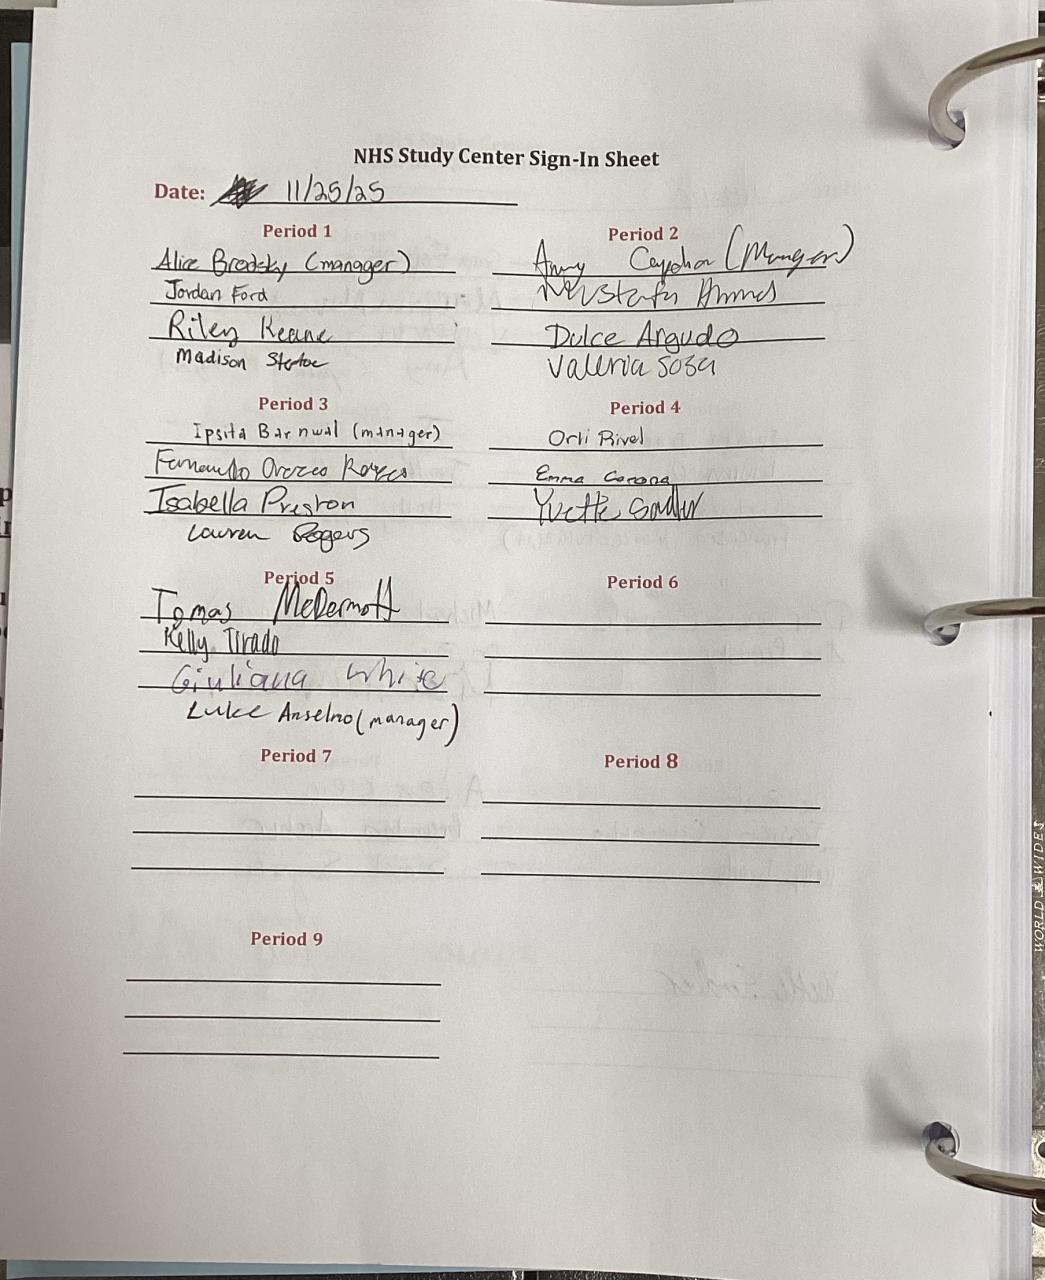 NHS Study Center Sign-In Sheet
Date: 11/25/25
Period 1
Alice Brodsky (manager)
Jordan Ford
Riley Keane
Madison
Period 2
Amy (Manager)
Mustafa Ahmed
Dulce Argudo
Valeria Sosa
Period 3
Ipsita Barnwal (manager)
Fernando Orozco
Isabella Preston
Lauren Rogers
Period 4
Orli Rivel
Emma Corona
Yvette
Period 5
Tomas McDermott
Kelly Tirado
Giuliana White
Luke Anselmo (manager)
Period 6
Period 7
Period 8
Period 9
WORLD WIDE